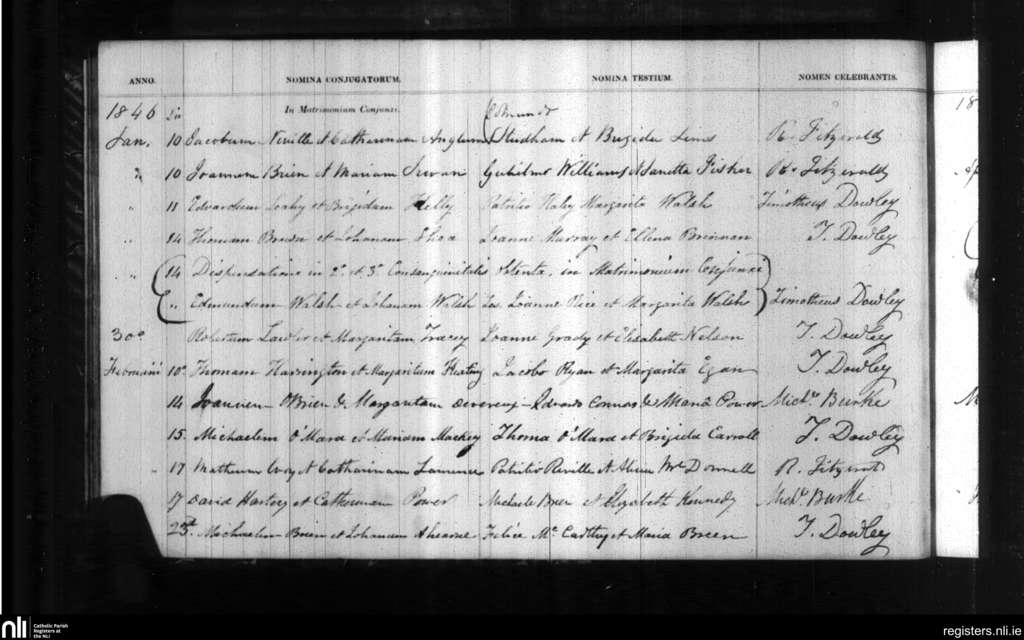 ANNO. NOMINA CONJUGATORUM. NOMINA TESTIUM. NOMEN CELEBRANTIS.
1846 Die In Matrimonium Conjunxi. Edmundo
Jan. 10 Jacobum Neville et Catharinam Anglum Studham et Brigida R. Fitzgerald
" 10 Joannem Brien et Mariam Gulielmo Williams et Sanetta Fisher R. Fitzgerald
" 11 Edvardum Leahy et Brigidam Kelly Patritio Haley Margarita Walsh Timotheus Dowley
" 14 Thomam Brown et Johanam Shea Joanne Murray et Ellena Brennan T. Dowley
" 14 Dispensatione in 2o et 3o Consanguinitatis obtenta, in Matrimonium Conjunxi
" Edmundum Walsh et Johanam Walsh Tes Joanne Rice et Margarita Walsh Timotheus Dowley
30o Robertum Lawler et Margaritam Tracey Joanne Grady et Elizabeth Nelson T. Dowley
10o Thomam Harrington et Margaritam Keating Jacobo Ryan et Margarita Egan T. Dowley
14 Joannem O'Brien & Margaritam Devereux Edvardo Connor & Maria Power Michl Burke
15. Michaelem O'Mara et Mariam Mackey Thoma O'Mara et Brigida Carroll T. Dowley
" 17 Matheum et Catharinam Laurence Patritio Reville et McDonnell R. Fitzgerald
17 David Hartery et Catherinam Power Michaele Brien et Elizabeth Kennedy Michl Burke
23rd Michaelem Breen et Johanam Ahearne Felice McCarthy et Maria Breen T. Dowley
18
nli Catholic Parish
Registers at
the NLI
registers.nli.ie